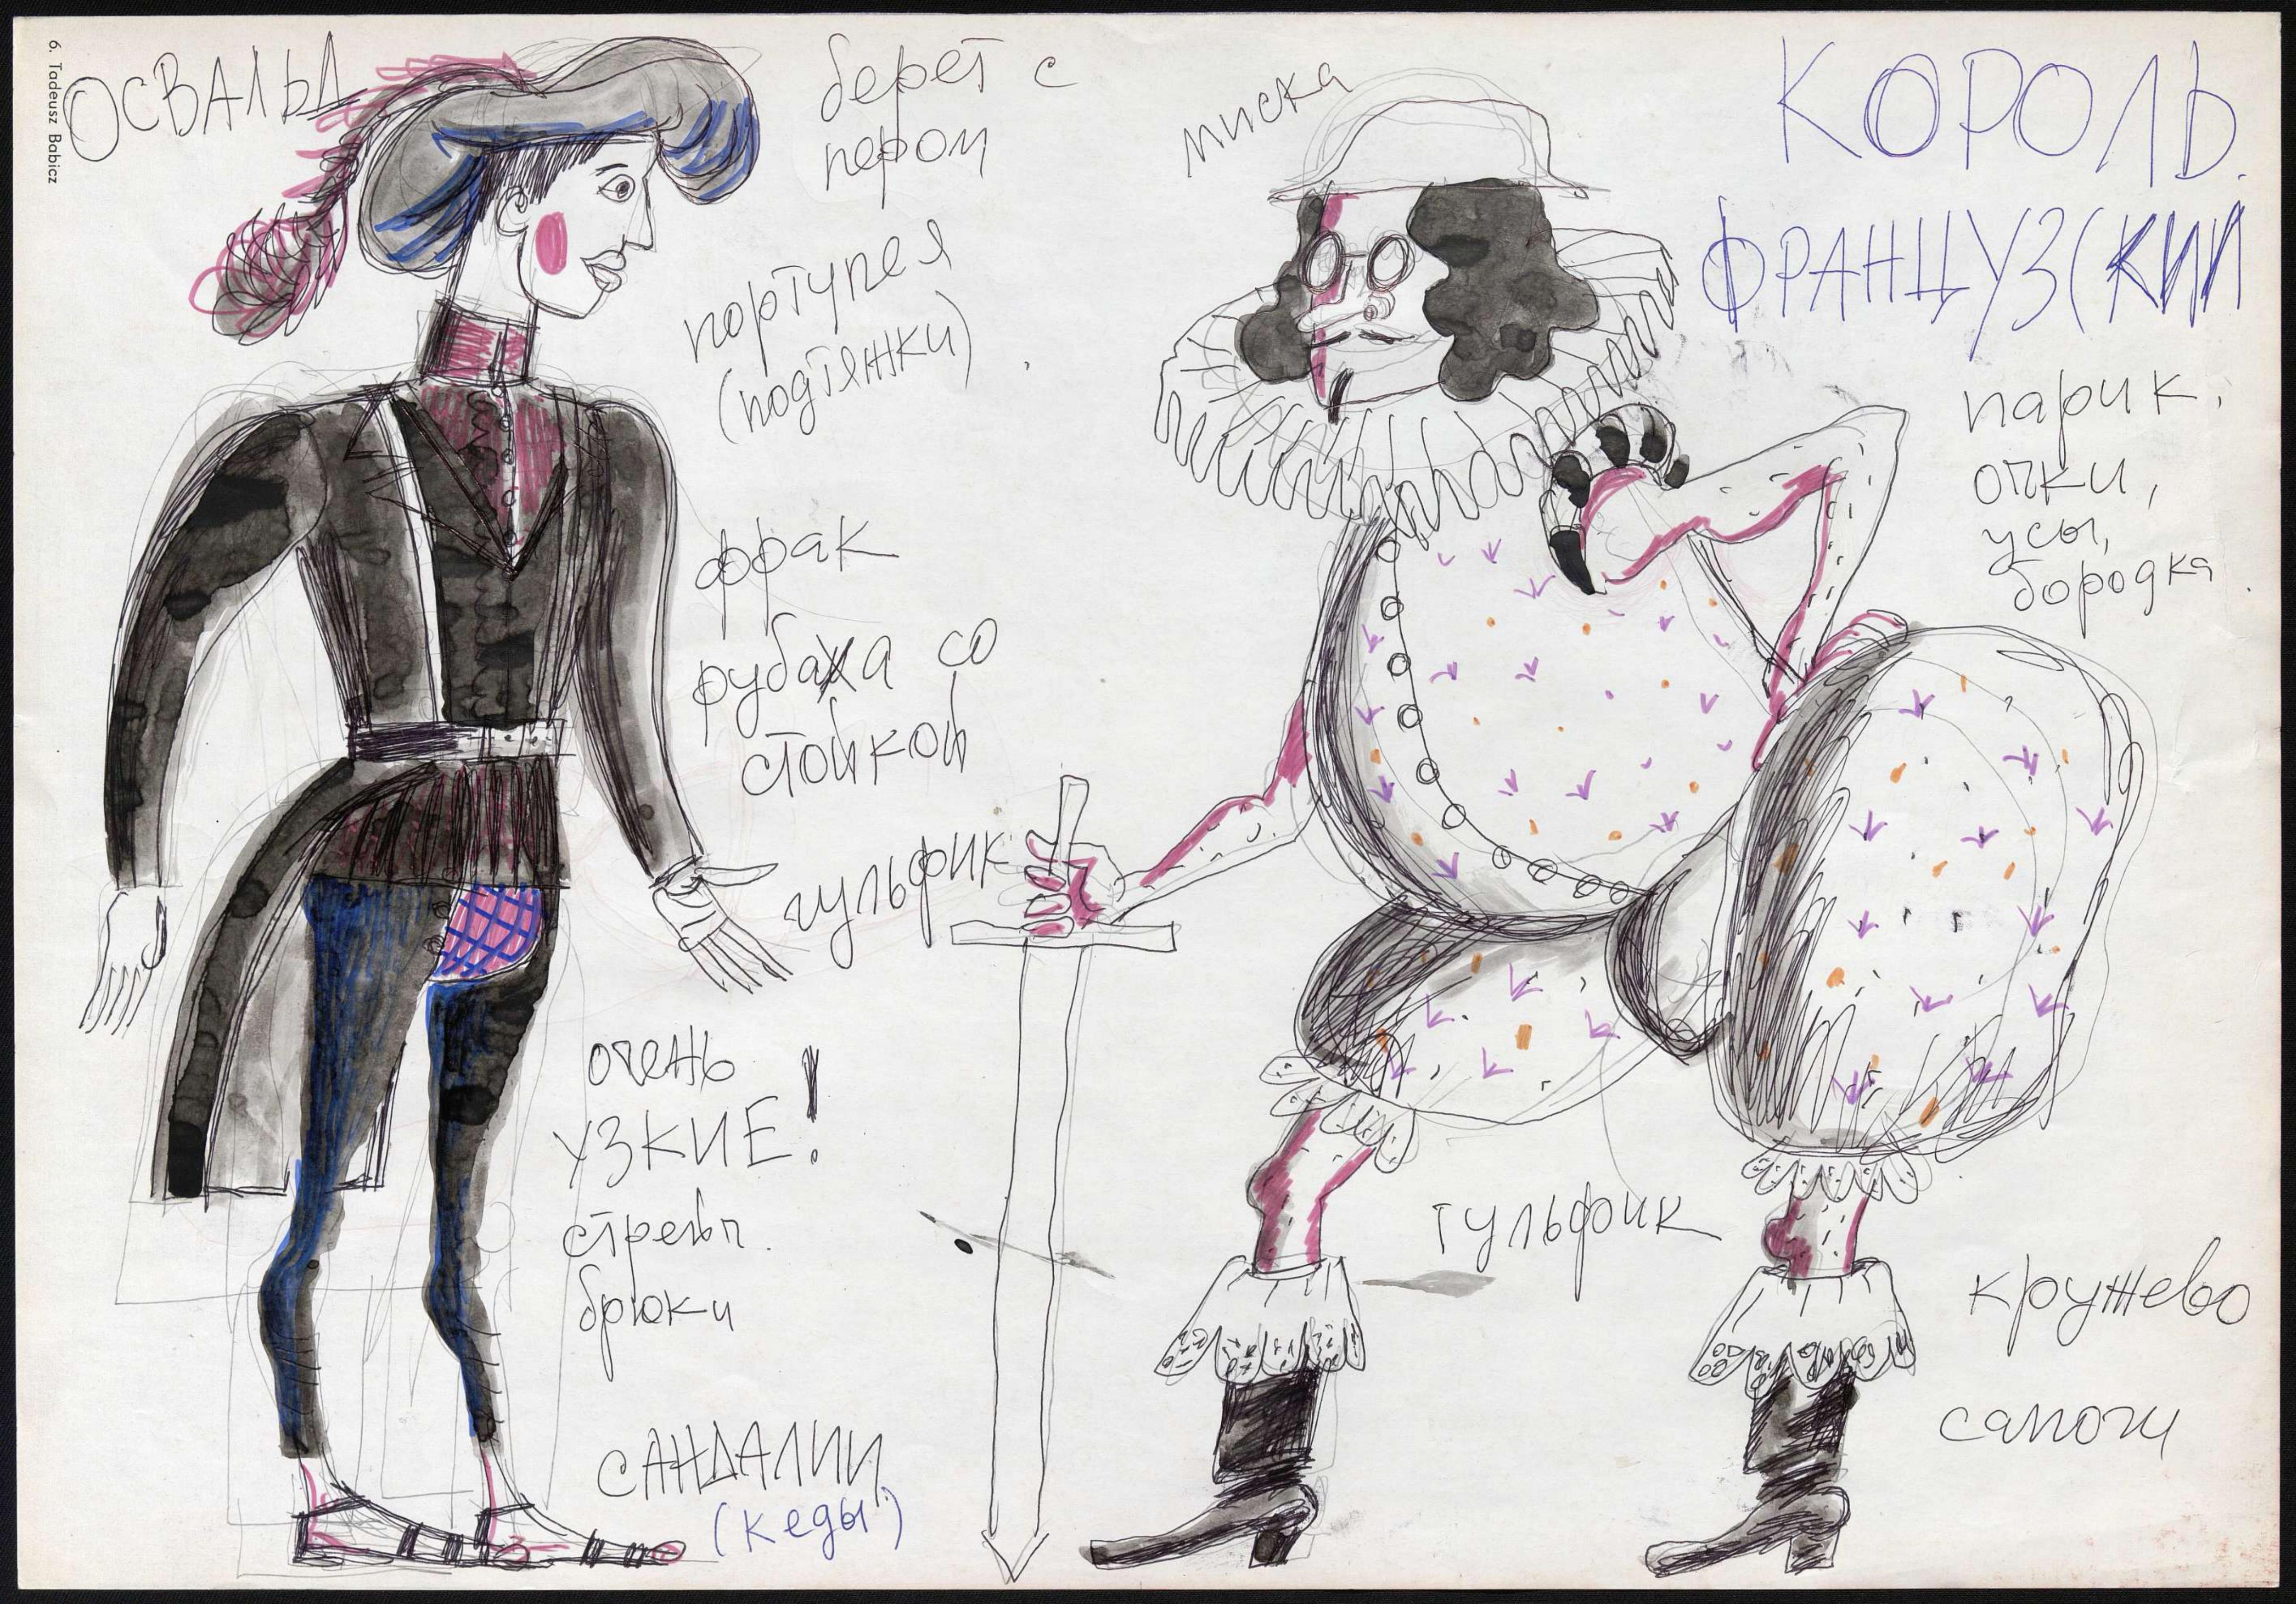 6. Tadeusz Babicz
ОСВАЛЬД
берет с
пером
портупея
(подтяжки)
фрак
рубаха со
стойкой
гульфик
очень
УЗКИЕ!
стрейч.
брюки
САНДАЛИИ
(кеды)
миска
КОРОЛЬ.
ФРАНЦУЗСКИЙ
парик,
очки,
усы,
бородка
гульфик
кружево
сапоги